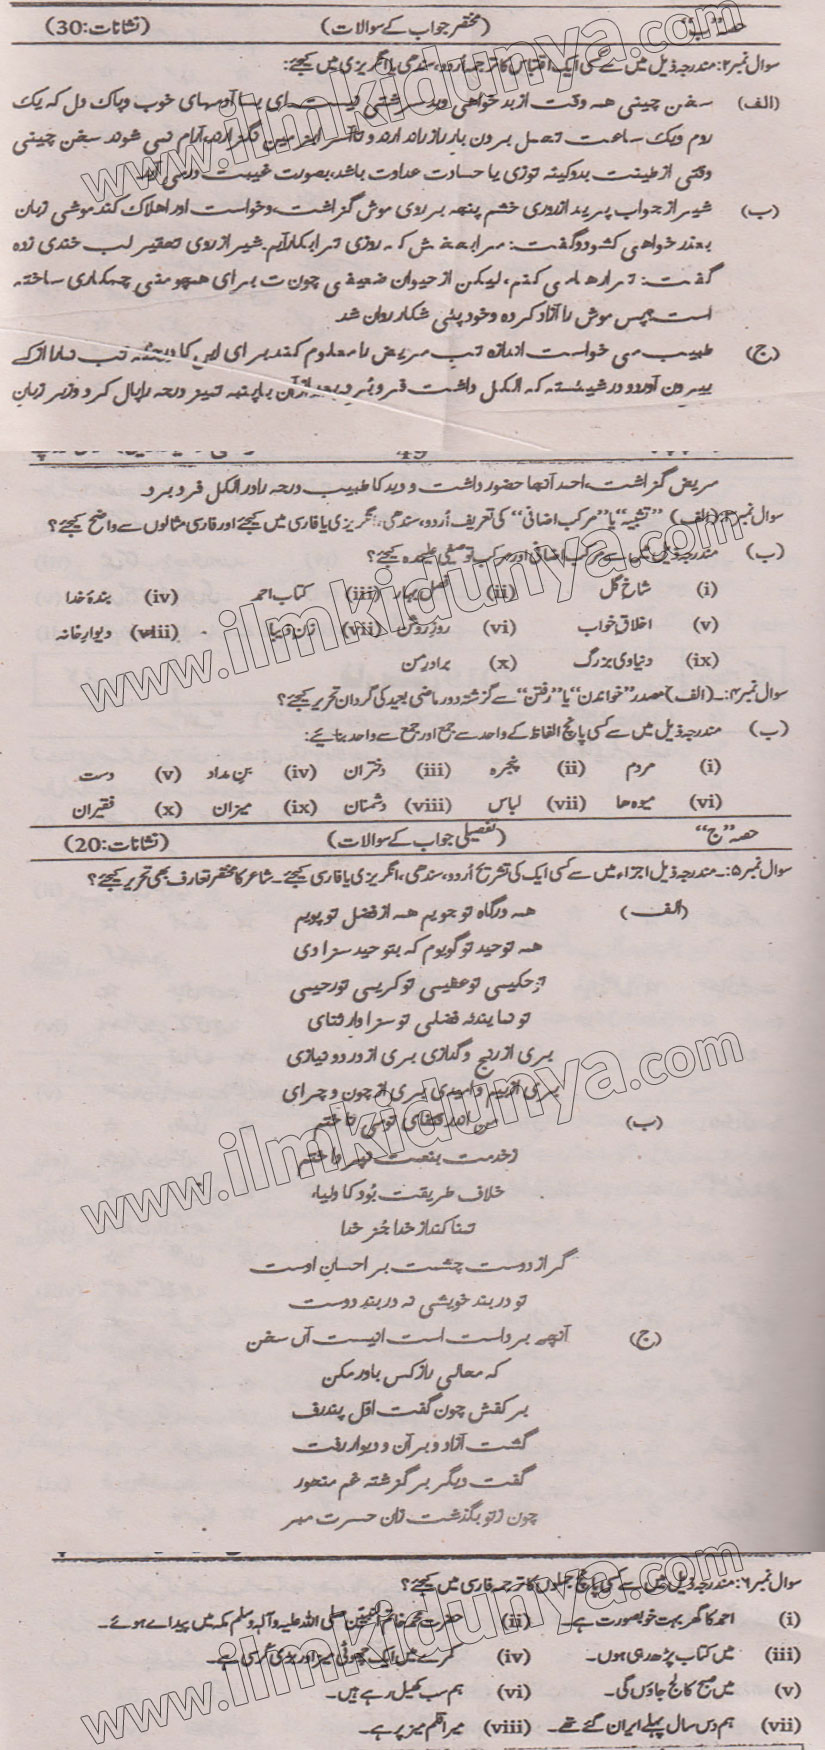 حصہ "ب" (مختصر جواب کے سوالات) (نشانات:30)
سوال نمبر۲: مندرجہ ذیل میں سے کسی ایک اقتباس کا ترجمہ اُردو، سندھی یا انگریزی میں کیجئے:
(الف) سخن چینی همه وقت از بد خواهی وبد سرشتی نیست۔ ای بسا آدمهای خوب و پاک دل که یک
روم ویک ساعت تحمل بردن بار راز ندارند و تا آنرا بر زمین نگزارند، آرام نمی شوند سخن چینی
وقتی از طینت بد و کینه توزی یا حسادت عداوت باشد، بصورت غیبت درمی آید۔
(ب) شیر از جواب پرید از روی خشم پنجه بر روی موش گزاشت، وخواست اورا هلاک کند موشی زبان
بعذر خواهی کشود وگفت: مرا ببخش که روزی ترا بکار آیم۔ شیر از روی تحقیر لب خندی زده
گفت: ترا رها می کنم، لیکن از حیوان ضعیفی چون ت برای همچو منی چه کاری ساخته
است؟ پس موش را آزاد کرده و خود پئی شکار روان شد
(ج) طبیب می خواست اندازه تپ مریض را معلوم کند برای این کا
بیرون آورد و در شیشته که الکل داشت فرو بُرد بعد از آن با پنبه تمیز درجه را پاک کرد و زیر زبان
مریض گزاشت، احمد آنها حضور داشت و دید کا طبیب درجه را در الکل فرو برد۔
سوال نمبر۳: (الف) "تشبیہ" یا "مرکب اضافی" کی تعریف اُردو، سندھی، انگریزی یا فارسی میں کیجئے اور فارسی مثالوں سے واضح کیجئے؟
(ب) مندرجہ ذیل میں سے مرکب اضافی اور مرکب توصیفی علیحدہ کیجئے؟
(i) شاخ گل (ii) فصل بہار (iii) کتاب احمر (iv) بندۂ خدا
(v) اخلاق خوب (vi) روز روشن (vii) زن زیبا (viii) دیوار خانہ
(ix) دنیاوی بزرگ (x) برادر من
سوال نمبر۴: (الف) مصدر "خواندن" یا "رفتن" سے گزشتہ دور ماضی بعید کی گردان تحریر کیجئے؟
(ب) مندرجہ ذیل میں سے کسی پانچ الفاظ کے واحد سے جمع اور جمع سے واحد بنائیے:
(i) مردم (ii) پنجرہ (iii) دختران (iv) بن مداد (v) دست
(vi) میوہ ها (vii) لباس (viii) دشمنان (ix) میزان (x) فقیران
حصہ "ج" (تفصیلی جواب کے سوالات) (نشانات:20)
سوال نمبر۵:۔ مندرجہ ذیل اجزاء میں سے کسی ایک کی تشریح اُردو، سندھی، انگریزی یا فارسی کیجئے۔ شاعر کا مختصر تعارف بھی تحریر کیجئے؟
(الف) همه درگاه تو جویم همه از فضل تو پویم
همه توحید تو گویوم که بتوحید سزا دی
تو حکیمی تو عظیمی تو کریمی تو رحیمی
تو نمایندئه فضلی تو سزا وار ثنای
بری از رنج و گدازی بری از درد و نیازی
بری از بیم و امیدی بری از چون و چرای
(ب)
ز خدمت بنعمت نپرداختم
خلاف طریقت بُود کا ولیاء
تمنا کنند از خدا جُز خدا
گر از دوست چشمت بر احسانِ اوست
تو در بند خویشی نه در بندِ دوست
(ج) آنچه بر دست است اینست آں سخن
که محالی را ز کس باور مکن
بر کفش چون گفت اوّل پند رف
گشت آزاد و بر آن و دیوار رفت
گفت دیگر بر گزشته غم مخور
چون ز تو بگذشت زان حسرت مبر
سوال نمبر۶: مندرجہ ذیل میں سے کسی پانچ جملوں کا ترجمہ فارسی میں کیجئے؟
(i) احمد کا گھر بہت خوبصورت ہے۔ (ii) حضرت محمد خاتم النبیین صلی اللہ علیہ و آلہ وسلم مکہ میں پیدا ے ہوئے۔
(iii) میں کتاب پڑھ رہی ہوں۔ (iv) کمرے میں ایک چھوٹی میز اور بڑی کرسی ہے۔
(v) میں صبح کالج جاؤں گی۔ (vi) ہم سب کھیل رہے ہیں۔
(vii) ہم دس سال پہلے ایران گئے تھے۔ (viii) میرا قلم میز پر ہے۔
www.ilmkidunya.com
www.ilmkidunya.com
www.ilmkidunya.com
www.ilmkidunya.com